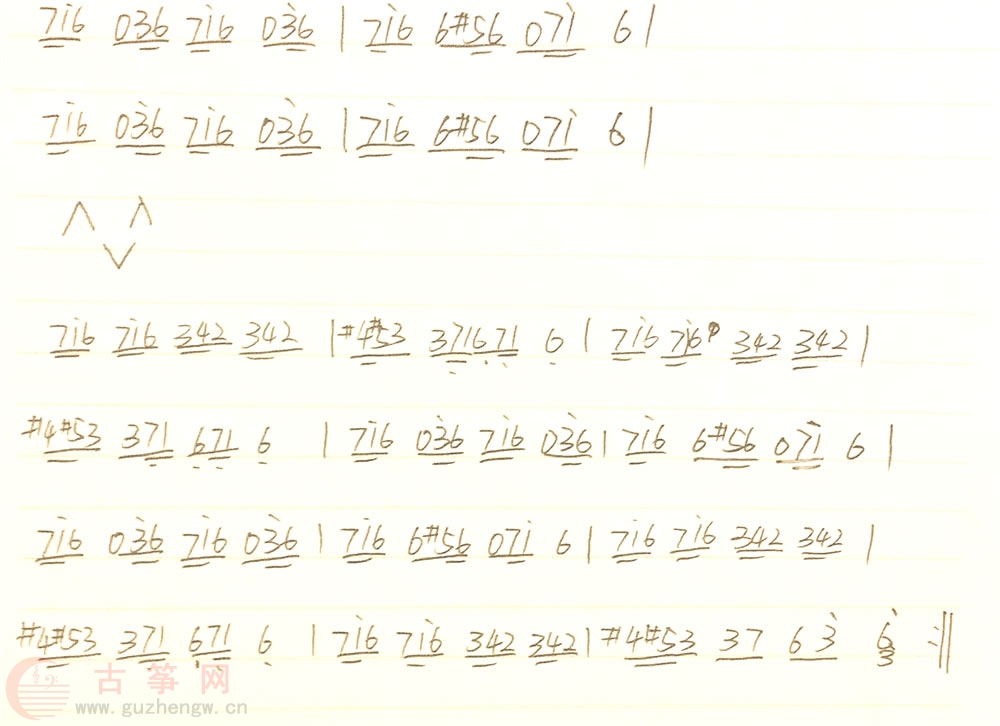 7i6 036 7i6 036 | 7i6 6#56 07i 6 |
7i6 036 7i6 036 | 7i6 6#56 07i 6 |
7i6 7i6 342 342 | #4#53 371671 6 | 7i6 7i6 342 342 |
#4#53 371 671 6 | 7i6 036 7i6 036 | 7i6 6#56 07i 6 |
7i6 036 7i6 036 | 7i6 6#56 07i 6 | 7i6 7i6 342 342 |
#4#53 371 671 6 | 7i6 7i6 342 342 | #4#53 37 63 6 3 :||
古筝网
www.guzhengw.cn